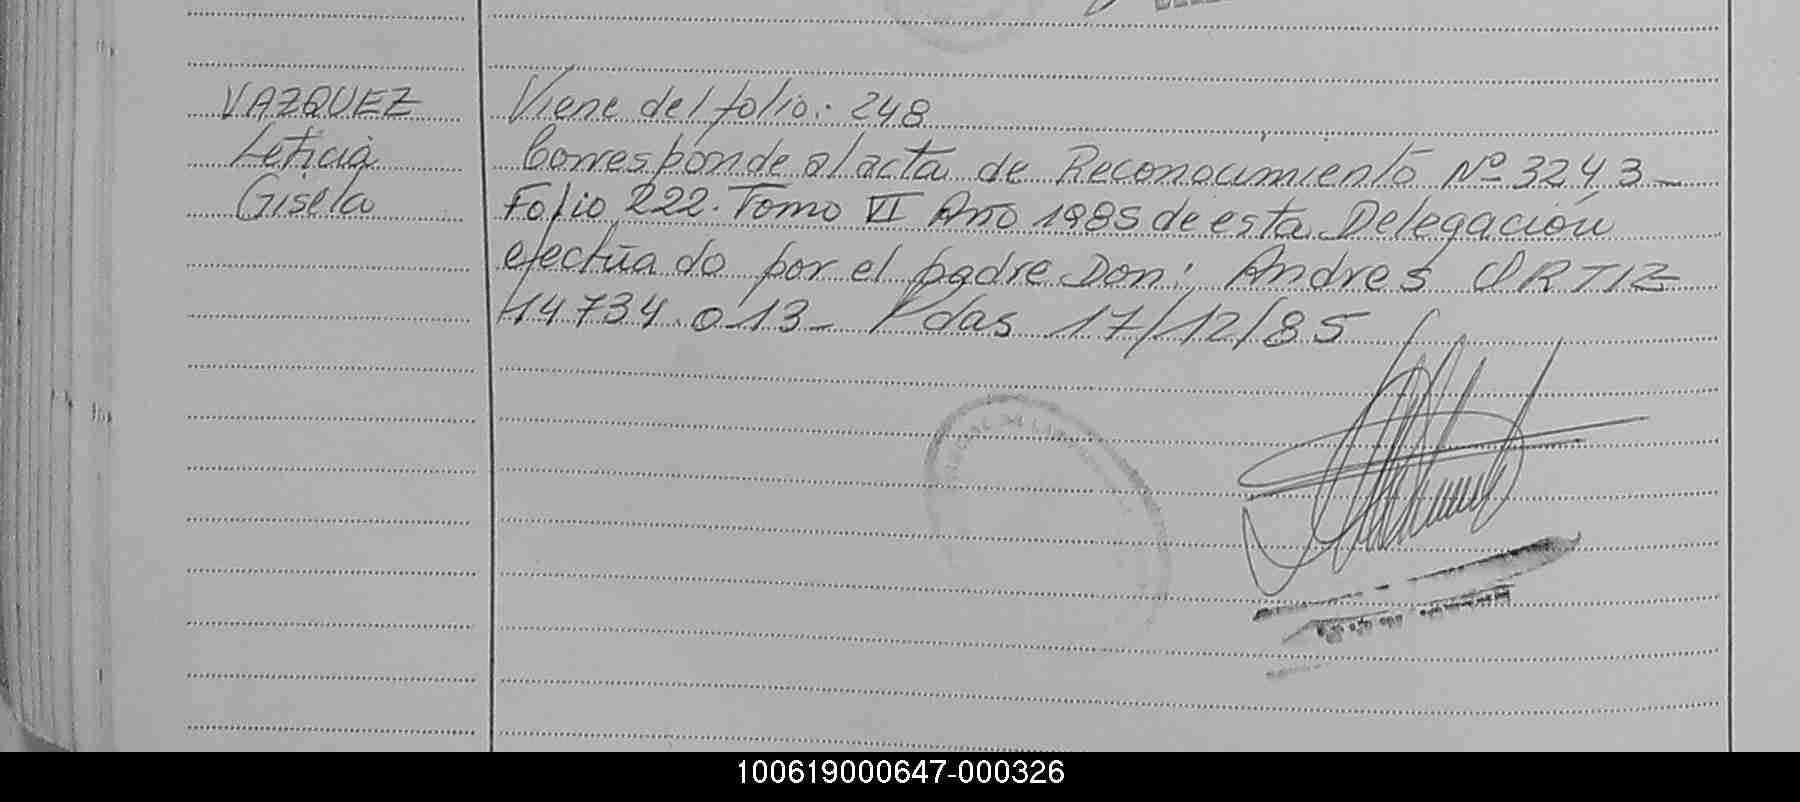 VAZQUEZ
Leticia
Gisela
Viene del folio: 248
Corresponde al acta de Reconocimiento Nº 3243-
Folio 222. Tomo VI Año 1985 de esta Delegación
efectuado por el padre Don: Andres ORTIZ
14734.013- Pdas 17/12/85
100619000647-000326